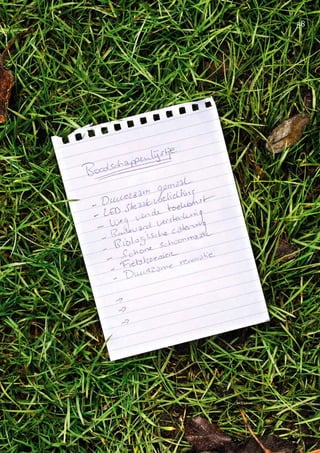 28
Boodschappenlijstje
- Duurzaam gemaal
- LED straatverlichting
- Weg van de toekomst
- Bodemverstening
- Biologische catering
- Schone schoonmaak
- Fietskoerier
- Duurzame renovatie
->
->
->